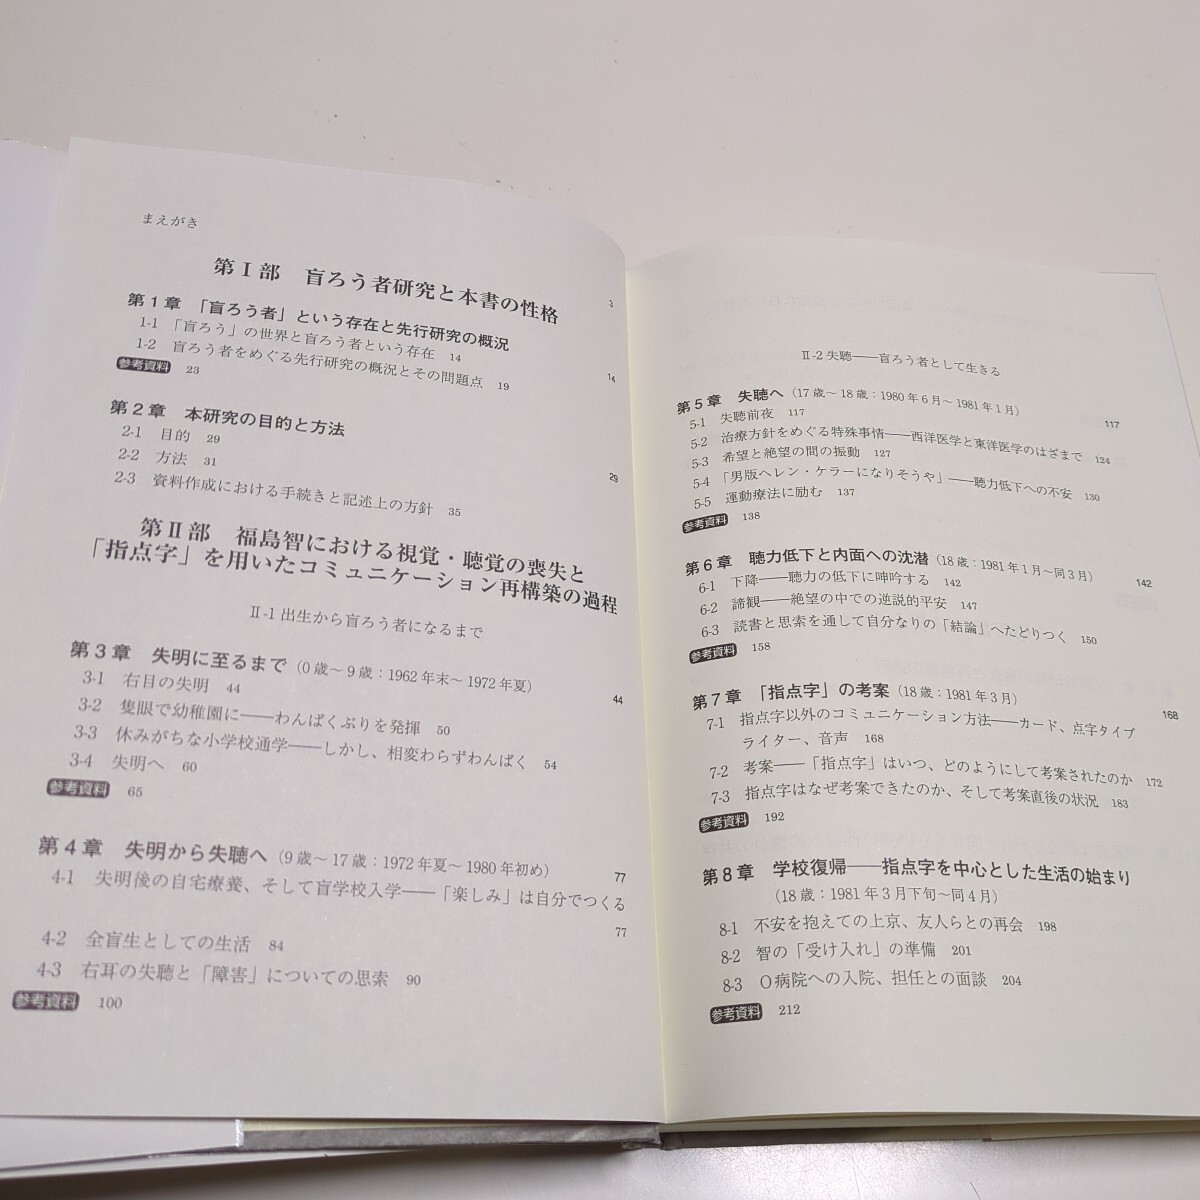 まえがき 3
第Ⅰ部 盲ろう者研究と本書の性格
第1章 「盲ろう者」という存在と先行研究の概況 14
1-1 「盲ろう」の世界と盲ろう者という存在 14
1-2 盲ろう者をめぐる先行研究の概況とその問題点 19
参考資料 23
第2章 本研究の目的と方法 29
2-1 目的 29
2-2 方法 31
2-3 資料作成における手続きと記述上の方針 35
第Ⅱ部 福島智における視覚・聴覚の喪失と
「指点字」を用いたコミュニケーション再構築の過程
Ⅱ-1 出生から盲ろう者になるまで
第3章 失明に至るまで(0歳〜9歳:1962年末〜1972年夏) 44
3-1 右目の失明 44
3-2 隻眼で幼稚園に――わんぱくぶりを発揮 50
3-3 休みがちな小学校通学――しかし、相変わらずわんぱく 54
3-4 失明へ 60
参考資料 65
第4章 失明から失聴へ(9歳〜17歳:1972年夏〜1980年初め) 77
4-1 失明後の自宅療養、そして盲学校入学――「楽しみ」は自分でつくる
77
4-2 全盲生としての生活 84
4-3 右耳の失聴と「障害」についての思索 90
参考資料 100
Ⅱ-2 失聴――盲ろう者として生きる
第5章 失聴へ(17歳〜18歳:1980年6月〜1981年1月) 117
5-1 失聴前夜 117
5-2 治療方針をめぐる特殊事情――西洋医学と東洋医学のはざまで 124
5-3 希望と絶望の間の振動 127
5-4 「男版ヘレン・ケラーになりそうや」――聴力低下への不安 130
5-5 運動療法に励む 137
参考資料 138
第6章 聴力低下と内面への沈潜(18歳:1981年1月〜同3月) 142
6-1 下降――聴力の低下に呻吟する 142
6-2 諦観――絶望の中での逆説的平安 147
6-3 読書と思索を通して自分なりの「結論」へたどりつく 150
参考資料 158
第7章 「指点字」の考案(18歳:1981年3月) 168
7-1 指点字以外のコミュニケーション方法――カード、点字タイプ
ライター、音声 168
7-2 考案――「指点字」はいつ、どのようにして考案されたのか 172
7-3 指点字はなぜ考案できたのか、そして考案直後の状況 183
参考資料 192
第8章 学校復帰――指点字を中心とした生活の始まり
(18歳:1981年3月下旬〜同4月)
8-1 不安を抱えての上京、友人らとの再会 198
8-2 智の「受け入れ」の準備 201
8-3 O病院への入院、担任との面談 204
参考資料 212